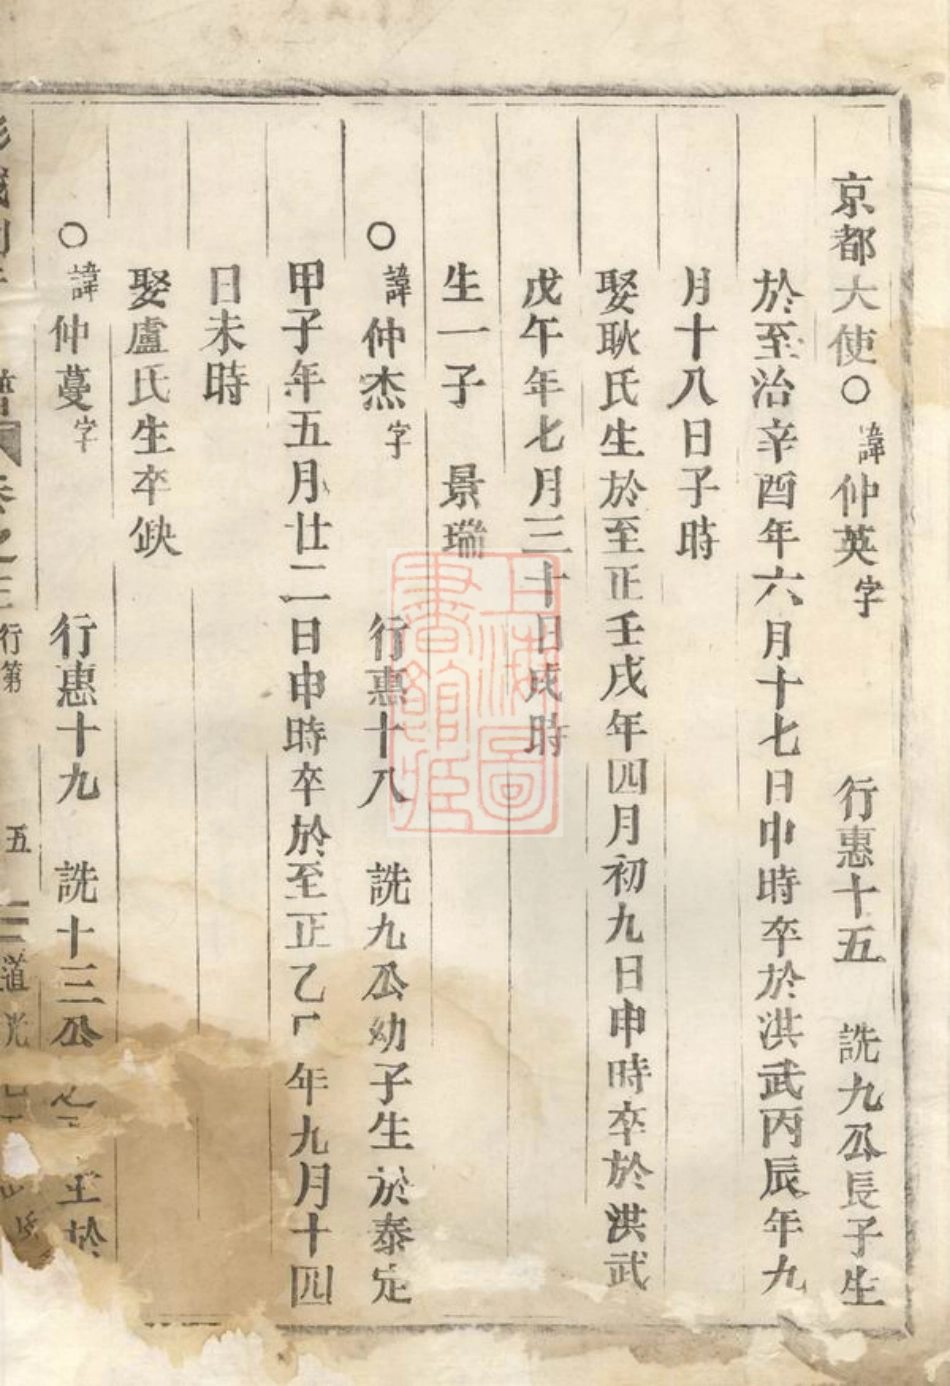 京都大使○諱仲英字 行惠十五 詵九公長子生
於至治辛酉年六月十七日申時卒於洪武丙辰年九
月十八日子時
娶耿氏生於至正壬戌年四月初九日申時卒於洪武
戊午年七月三十日戌時
生一子 景瑞
○諱仲杰字 行惠十八 詵九公幼子生於泰定
甲子年五月廿二日申時卒於至正乙 年九月十四
日未時
娶盧氏生卒缺
○諱仲蔓字 行惠十九 詵十三公 生於
譜 卷之三 行第 五 道光
上海圖書館藏